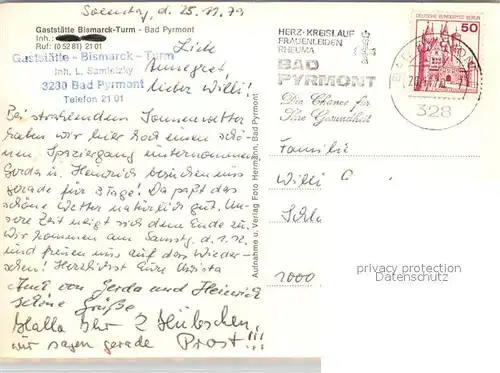 Sonntag, d. 25.11.79
Gaststätte Bismarck-Turm - Bad Pyrmont
Inh.:
Ruf: (05281) 2101
Gaststätte - Bismarck - Turm
Inh. L. Samietzky
3280 Bad Pyrmont
Telefon 21 01
Liebe
Annegret,
lieber Willi!
Bei strahlendem Sonnenwetter
haben wir hier hoch einen schö-
nen Spaziergang unternommen
Gerda u. Heinrich besuchen uns
gerade für 3 Tage! Da paßt das
schöne Wetter natürlich gut. Un-
sere Zeit neigt sich dem Ende zu.
Wir kommen am Samstg. d. 1.12.
und freuen uns auf das Wieder-
sehen! Herzlichst Eure Christa
Auch von Gerda und Heinrich
schöne Grüße
Hallo Ihr 2 Hübschen,
wir sagen gerade Prost!!!
Aufnahme u. Verlag Foto Hermann, Bad Pyrmont
HERZ-KREISLAUF
FRAUENLEIDEN
RHEUMA
BAD
PYRMONT
Die Chance für
Ihre Gesundheit
DEUTSCHE BUNDESPOST BERLIN
50
328
Familie
Willi
1000
privacy protection
Datenschutz